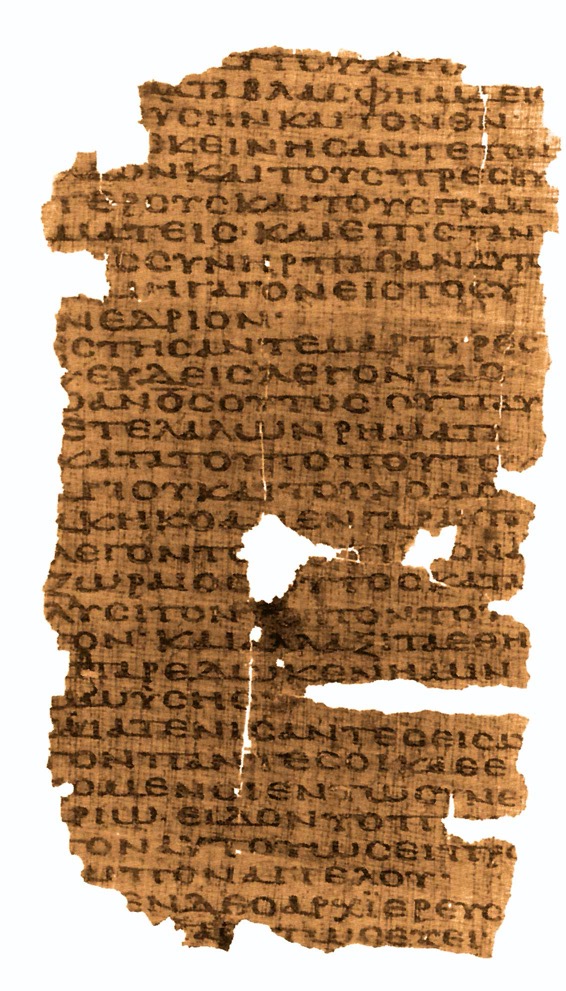 ΤΟΥ ΛΕΓΟ
ΜΑΤΑ ΒΛΑΣΦΗΜΑ ΕΙ
ΥΣΗΝ ΚΑΙ ΤΟΝ ΘΝ
ΕΚΕΙΝΗΣΑΝ ΤΕ ΤΟΝ
ΛΑΟΝ ΚΑΙ ΤΟΥΣ ΠΡΕΣΒΥ
ΤΕΡΟΥΣ ΚΑΙ ΤΟΥΣ ΓΡΑΜ
ΜΑΤΕΙΣ· ΚΑΙ ΕΠΙΣΤΑΝ
ΕΣ ΣΥΝΗΡΠΑΣΑΝ ΑΥΤ
ΗΓΑΓΟΝ ΕΙΣ ΤΟ ΣΥ
ΝΕΔΡΙΟΝ·
ΕΣΤΗΣΑΝ ΤΕ ΜΑΡΤΥΡΕΣ
ΕΥΔΕΙΣ ΛΕΓΟΝΤΑΣ
Ο ΑΝΟΣ ΟΥΤΟΣ ΟΥ ΠΑΥ
ΕΤΕ ΛΑΛΩΝ ΡΗΜΑΤΑ
ΚΑΤΑ ΤΟΥ ΤΟΠΟΥ ΤΟ
ΑΓΙΟΥ ΚΑΙ ΤΟΥ ΝΟΜΟ
ΑΚΗΚΟΑΜΕΝ ΓΑΡ ΑΥΤΟ
ΛΕΓΟΝΤ ΟΝΑ
ΖΩΡΑΙΟΣ ΟΥΤΟΣ ΚΑΤΑ
ΛΥΣΙ ΤΟΝ ΤΟ ΤΟΥΤΟ
ΟΝ· ΚΑΙ ΑΛΛΑΞΙ ΤΑ ΕΘΗ
Α ΠΑΡΕΔΩΚΕΝ ΗΜΙΝ
ΜΩΥΣΗΣ
ΚΑΙ ΑΤΕΝΙΣΑΝΤΕΣ ΕΙΣ Α
ΤΟΝ ΠΑΝΤΕΣ ΟΙ ΚΑΘΕ
ΖΟΜΕΝΟΙ ΕΝ ΤΩ ΣΥΝΕ
ΡΙΩ· ΕΙΔΟΝ ΤΟ Π
ΤΟΝ ΑΥΤΟΥ ΩΣΕΙ ΠΡΟ
ΩΠΟΝ ΑΓΓΕΛΟΥ·
ΕΝ ΔΕ Ο ΑΡΧΙΕΡΕΥΣ